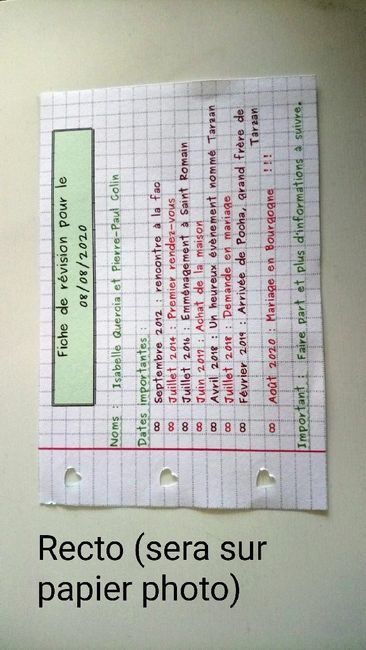 Fiche de révision pour le
08/08/2020
Noms : Isabelle Queroia et Pierre-Paul Colin
Dates importantes :
∞ Septembre 2012 : rencontre à la fac
∞ Juillet 2014 : Premier rendez-vous
∞ Juillet 2016 : Emménagement à Saint Romain
∞ Juin 2017 : Achat de la maison
∞ Avril 2018 : Un heureux évènement nommé Tarzan
∞ Juillet 2018 : Demande en mariage
∞ Février 2019 : Arrivée de Pocha, grand frère de
Tarzan
∞ Août 2020 : Mariage en Bourgogne !!!
Important : Faire part et plus d'informations à suivre.
Recto (sera sur
papier photo)